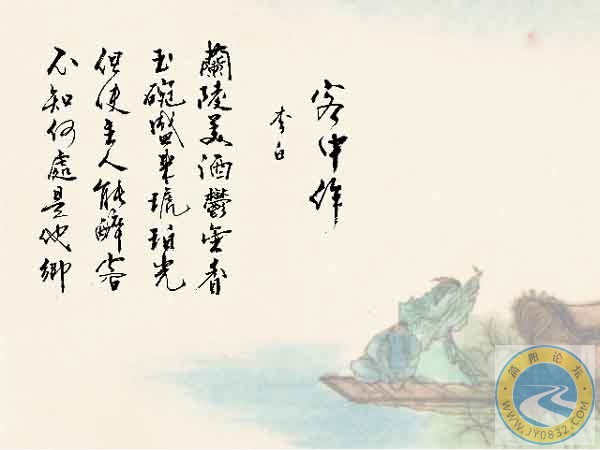 客中作
李白
蘭陵美酒鬱金香
玉碗盛來琥珀光
但使主人能醉客
不知何處是他鄉
简阳论坛
WWW.JY0832.COM